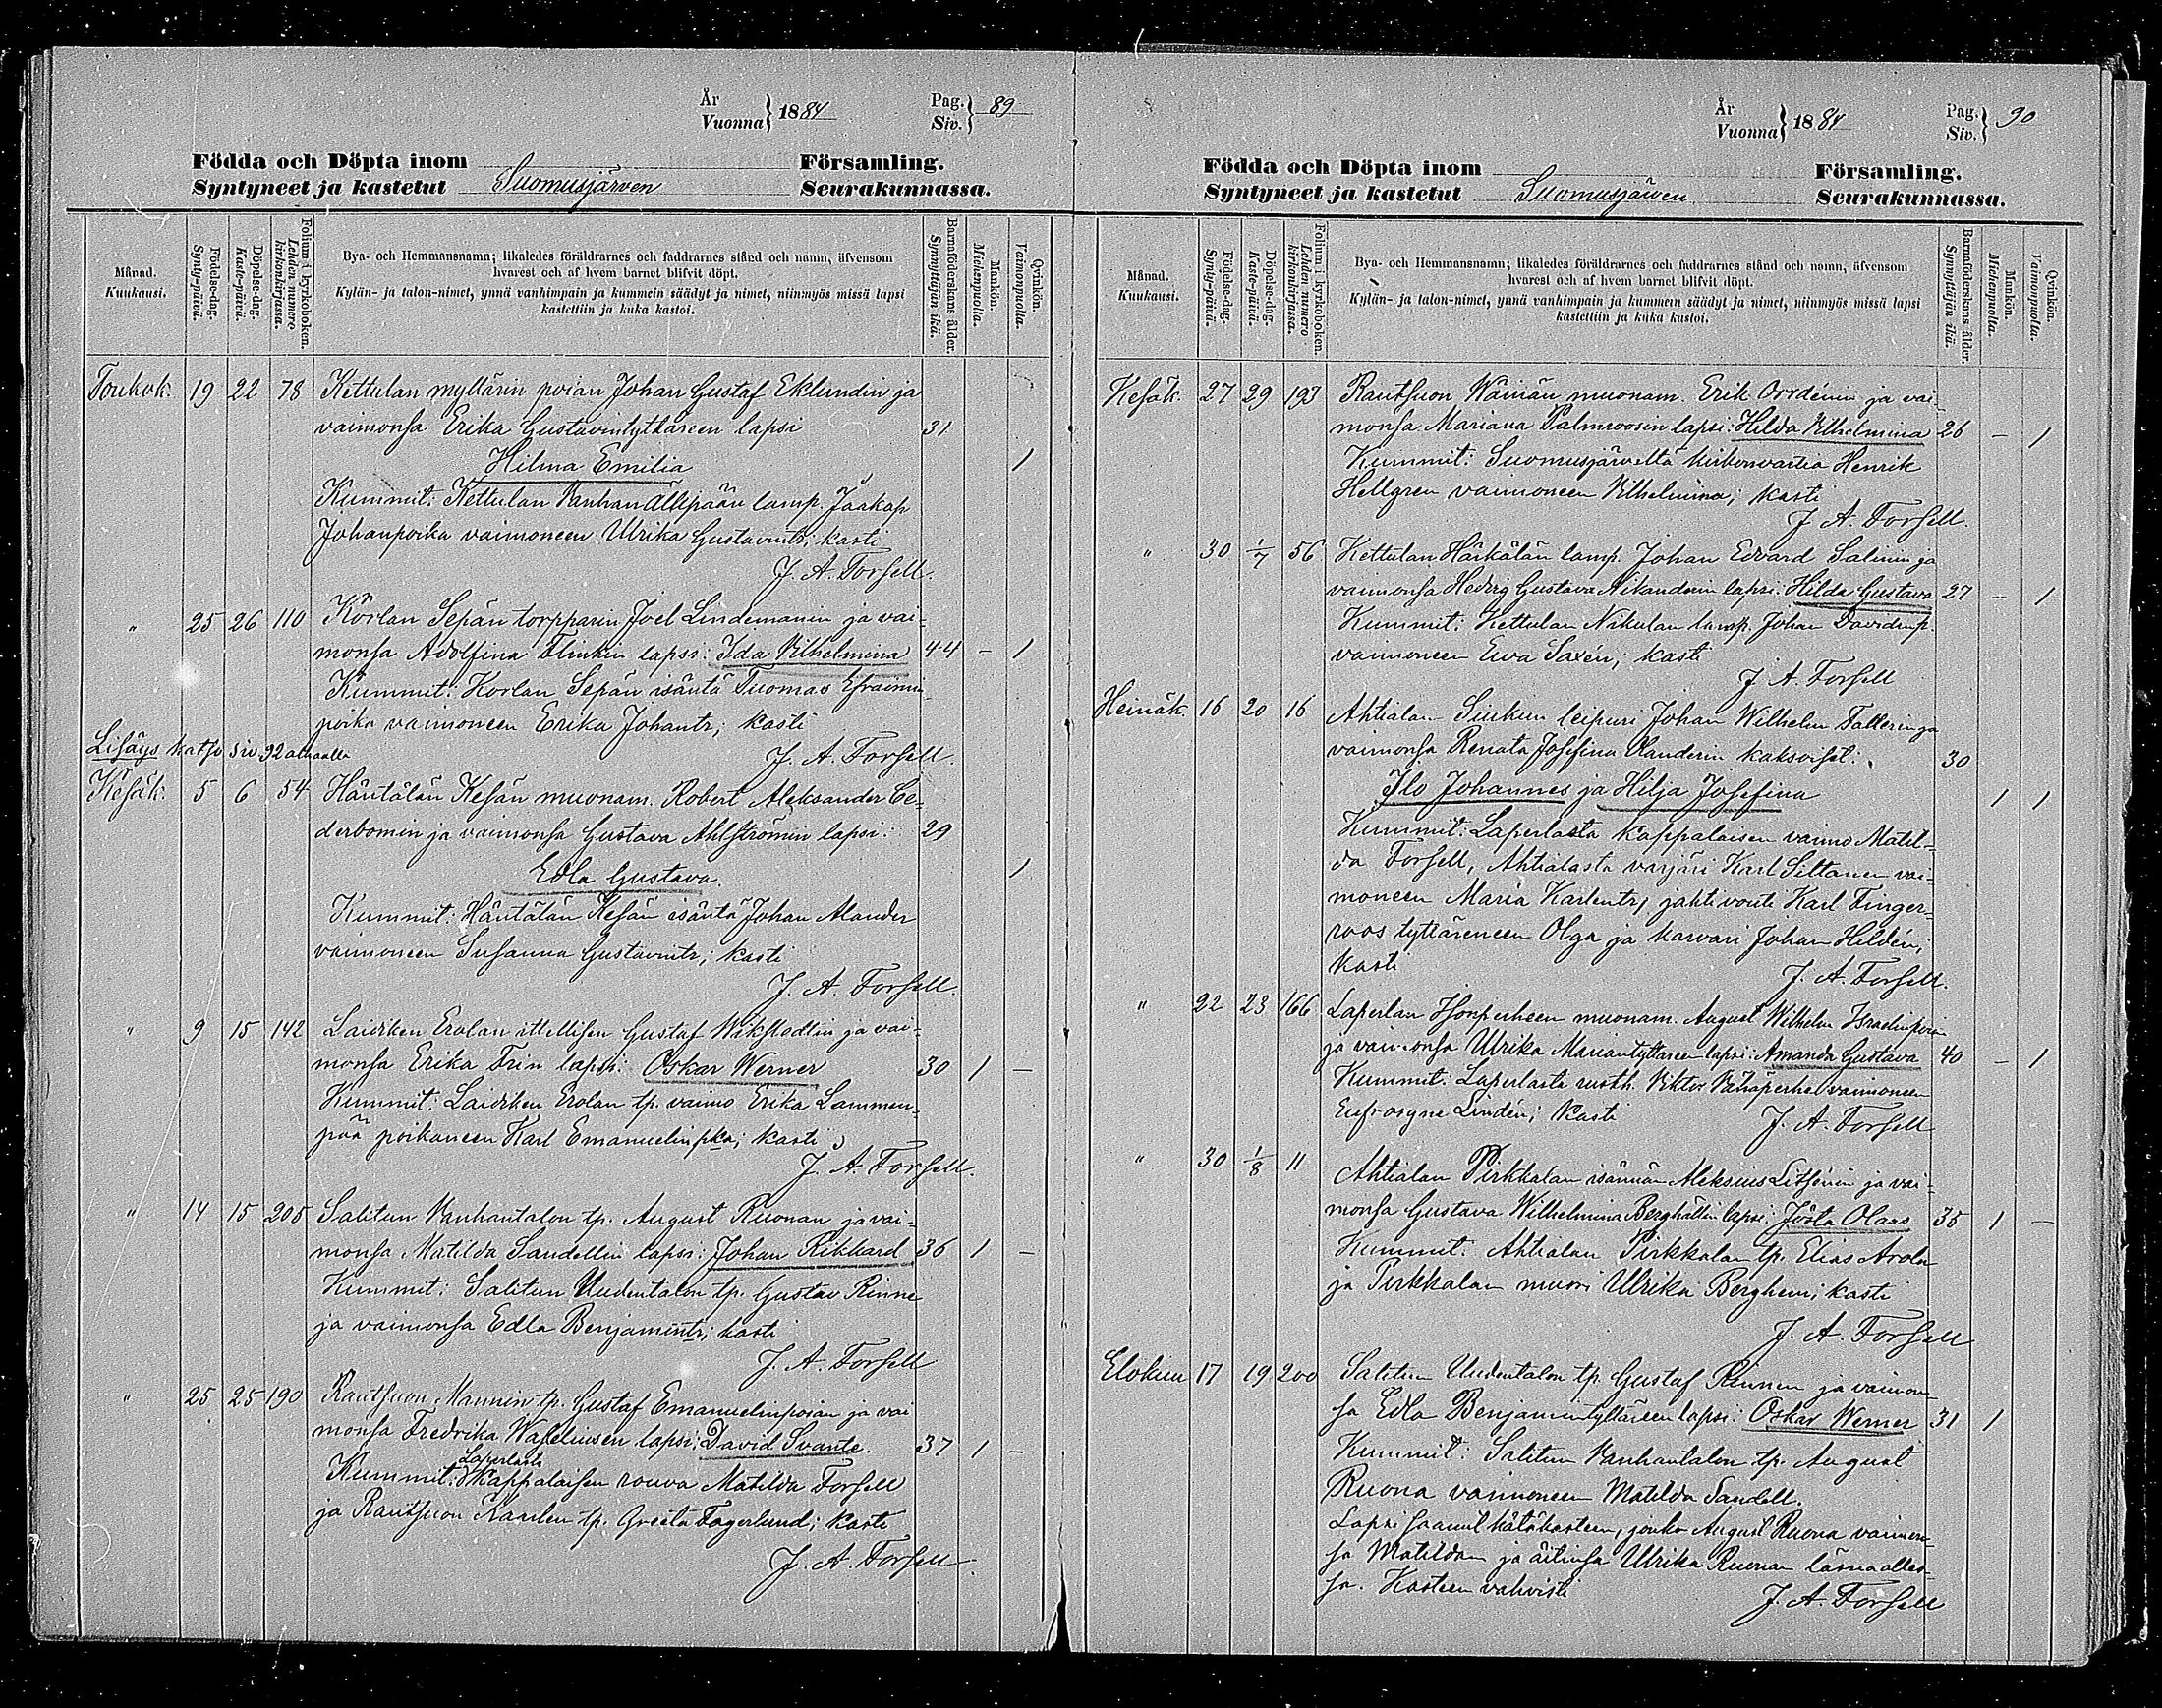 År
Vuonna } 1884
Pag.
Siv. } 89
Födda och Döpta inom Församling.
Syntyneet ja kastetut Suomusjärven Seurakunnassa.
Månad.
Kuukausi.
Födelse-dag.
Synty-päivä.
Döpelse-dag.
Kaste-päivä.
Folium i kyrkoboken.
Lehden numero kirkonkirjassa.
Bya- och Hemmansnamn; likaledes föräldrarnes och faddrarnes stånd och namn, äfvensom
hvarest och af hvem barnet blifvit döpt.
Kylän- ja talon-nimet, ynnä vanhimpain ja kummein säädyt ja nimet, niinmyös missä lapsi
kastettiin ja kuka kastoi.
Barnaföderskans ålder.
Synnyttäjän ikä.
Mankön.
Miehenpuolta.
Qvinkön.
Vaimonpuolta.
Toukok. 19 22 78 Kettulan myllärin poian Johan Gustaf Eklundin ja
vaimonsa Erika Gustavintyttären lapsi 31
Hilma Emilia 1
Kummit: Kettulan Vanhan Allipään lamp. Jaakap
Johanpoika vaimoneen Ulrika Gustavintr; kasti
J. A. Forsell.
" 25 26 110 Korlan Sepän torpparin Joel Lindemanin ja vai-
monsa Adolfina Flinkin lapsi: Ida Vilhelmina 44 - 1
Kummit: Korlan Sepän isäntä Tuomas Efraimin
poika vaimoneen Erika Johantr; kasti
Lisäys katso siv 92 alhaalla
J. A. Forsell.
Kesäk. 5 6 54 Häntälän Kesän muonam. Robert Aleksander Ce-
derbomin ja vaimonsa Gustava Ahlströmin lapsi: 29
Edla Gustava. 1
Kummit: Häntälän Kesän isäntä Johan Alander
vaimoneen Susanna Gustavintr; kasti
J. A. Forsell.
" 9 15 142 Laidiken Erolan ittellisen Gustaf Wikstedtin ja vai-
monsa Erika Frin lapsi: Oskar Werner 30 1 —
Kummit: Laidiken Erolan tp. vaimo Erika Lammen-
pää poikaneen Karl Emanuelinpka; kasti
J. A. Forsell.
" 14 15 205 Salitun Vanhantalon tp. August Ruonan ja vai-
monsa Matilda Sandellin lapsi: Johan Rikhard 36 1 —
Kummit: Salitun Uudentalon tp. Gustav Rinne
ja vaimonsa Edla Benjamintr; kasti
J. A. Forsell
" 25 25 190 Rautsuon Mannin tp. Gustaf Emanuelinpoian ja vai
monsa Fredrika lapsi: David Svante. 37 1 —
Laperlasta
Kummit: Kappalaisen rouva Matilda Forsell
ja Rautsuon tp. Greeta Fagerlund; kasti
J. A. Forsell.
År
Vuonna } 1884
Pag.
Siv. } 90
Födda och Döpta inom Församling.
Syntyneet ja kastetut Suomusjärven Seurakunnassa.
Månad.
Kuukausi.
Födelse-dag.
Synty-päivä.
Döpelse-dag.
Kaste-päivä.
Folium i kyrkoboken.
Lehden numero kirkonkirjassa.
Bya- och Hemmansnamn; likaledes föräldrarnes och faddrarnes stånd och namn, äfvensom
hvarest och af hvem barnet blifvit döpt.
Kylän- ja talon-nimet, ynnä vanhimpain ja kummein säädyt ja nimet, niinmyös missä lapsi
kastettiin ja kuka kastoi.
Barnaföderskans ålder.
Synnyttäjän ikä.
Mankön.
Miehenpuolta.
Qvinkön.
Vaimonpuolta.
Kesäk. 27 29 193 Rautsuon Wäinän muonam. Erik Orrdénin ja vai-
monsa Mariana Palmroosin lapsi: Hilda Vilhelmina 26 — 1
Kummit: Suomusjärveltä kirkonvartia Henrik
Hellgren vaimoneen Vilhelmina; kasti
J. A. Forsell.
" 30 1/7 56 Kettulan Härkälän lamp. Johan Edvard Salinin ja
vaimonsa Hedvig Gustava Nikanderin lapsi: Hilda Gustava 27 — 1
Kummit: Kettulan Nikulan lamp. Johan Davidinp.
vaimoneen Ewa Saxén; kasti
J. A. Forsell
Heinäk. 16 20 16 Ahtialan Siukun leipuri Johan Wilhelm Fallerin ja
vaimonsa Renata Josefina Olanderin kaksoiset: 30
Ilo Johannes ja Hilja Josefina 1 1
Kummit: Laperlasta kappalaisen vaimo Matil-
da Forsell, Ahtialasta värjäri Karl Settanen vai-
moneen Maria Karlentr, jahtivouti Karl Finger-
roos tyttäreneen Olga ja karvari Johan Hildén;
kasti
J. A. Forsell.
" 22 23 166 Laperlan Isonperheen muonam. August Wilhelm Israelinpoian
ja vaimonsa Ulrika Mariantyttären lapsi: Amanda Gustava 40 — 1
Kummit: Laperlasta rusth. Viktor Vähäperhe vaimoneen
Eufrosyne Lindén; kasti
J. A. Forsell
" 30 1/8 11 Ahtialan Pirkkalan isännän Aleksius Litsénin ja vai-
monsa Gustava Wilhelmina Berghällin lapsi: Jösta Olaas 35 1 —
Kummit: Ahtialan Pirkkalan tp. Elias Arola
ja Pirkkalan muori Ulrika Berghem; kasti
J. A. Forsell
Elokuu 17 19 200 Salitun Uudentalon tp. Gustaf Rinnen ja vaimon-
sa Edla Benjamintyttären lapsi: Oskar Werner 31 1
Kummit: Salitun Vanhantalon tp. August
Ruona vaimoneen Matilda Sandell.
Lapsi saanut hätäkasteen, jonka August Ruona vaimon-
sa Matildan ja äitinsä Ulrika Ruonan läsnäolles-
sa. Kasteen vahvisti
J. A. Forsell